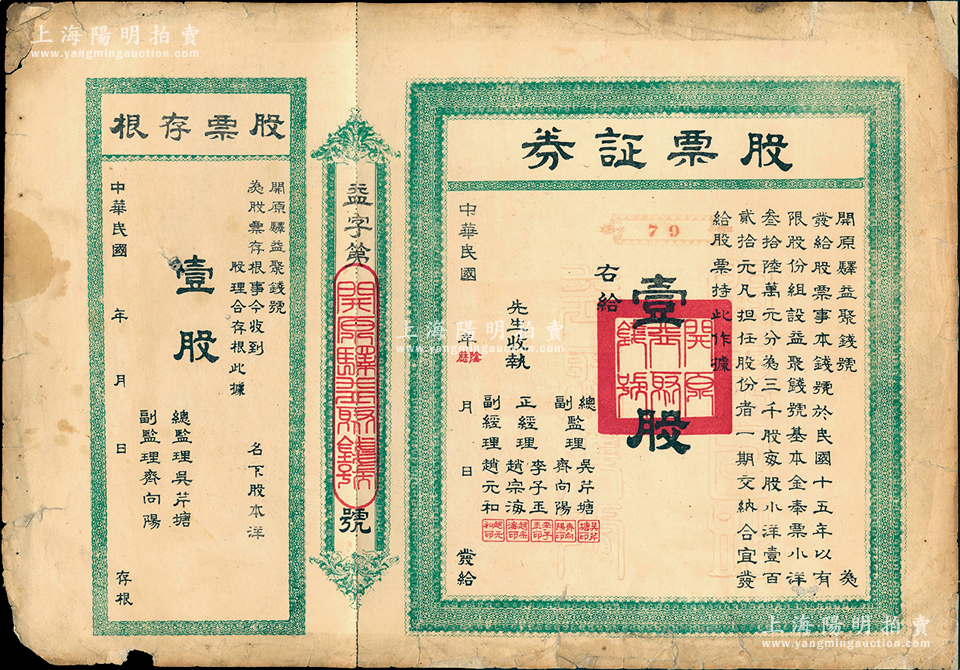 上海陽明拍賣
www.yangmingauction.com
股票証券
開原驛益聚錢號 為
發給股票事本錢號於民國十五年以有
限股份組設益聚錢號基本金奉票小洋
叁拾陸萬元分為三千股每股小洋壹百
貳拾元凡担任股份者一期交納合宜發
給股票持此作據
79
壹股
開原益聚錢號
右給
先生收執
總監理 吳芹塘
副監理 齊向陽
正經理 李子玉
趙宗海
副經理 趙元和
吳芹塘印
齊向陽印
李子玉印
趙宗海印
趙元和印
中華民國 年 月 日 發給
陰曆
益字第 號
開原驛益聚錢號
股票存根
開原驛益聚錢號
為股票存根事今收到
名下股本洋
股理合存根此據
壹股
總監理吳芹塘
副監理齊向陽
中華民國 年 月 日 存根
上海陽明拍賣
www.yangmingauction.com
上海陽明拍賣
www.yangmingauction.com